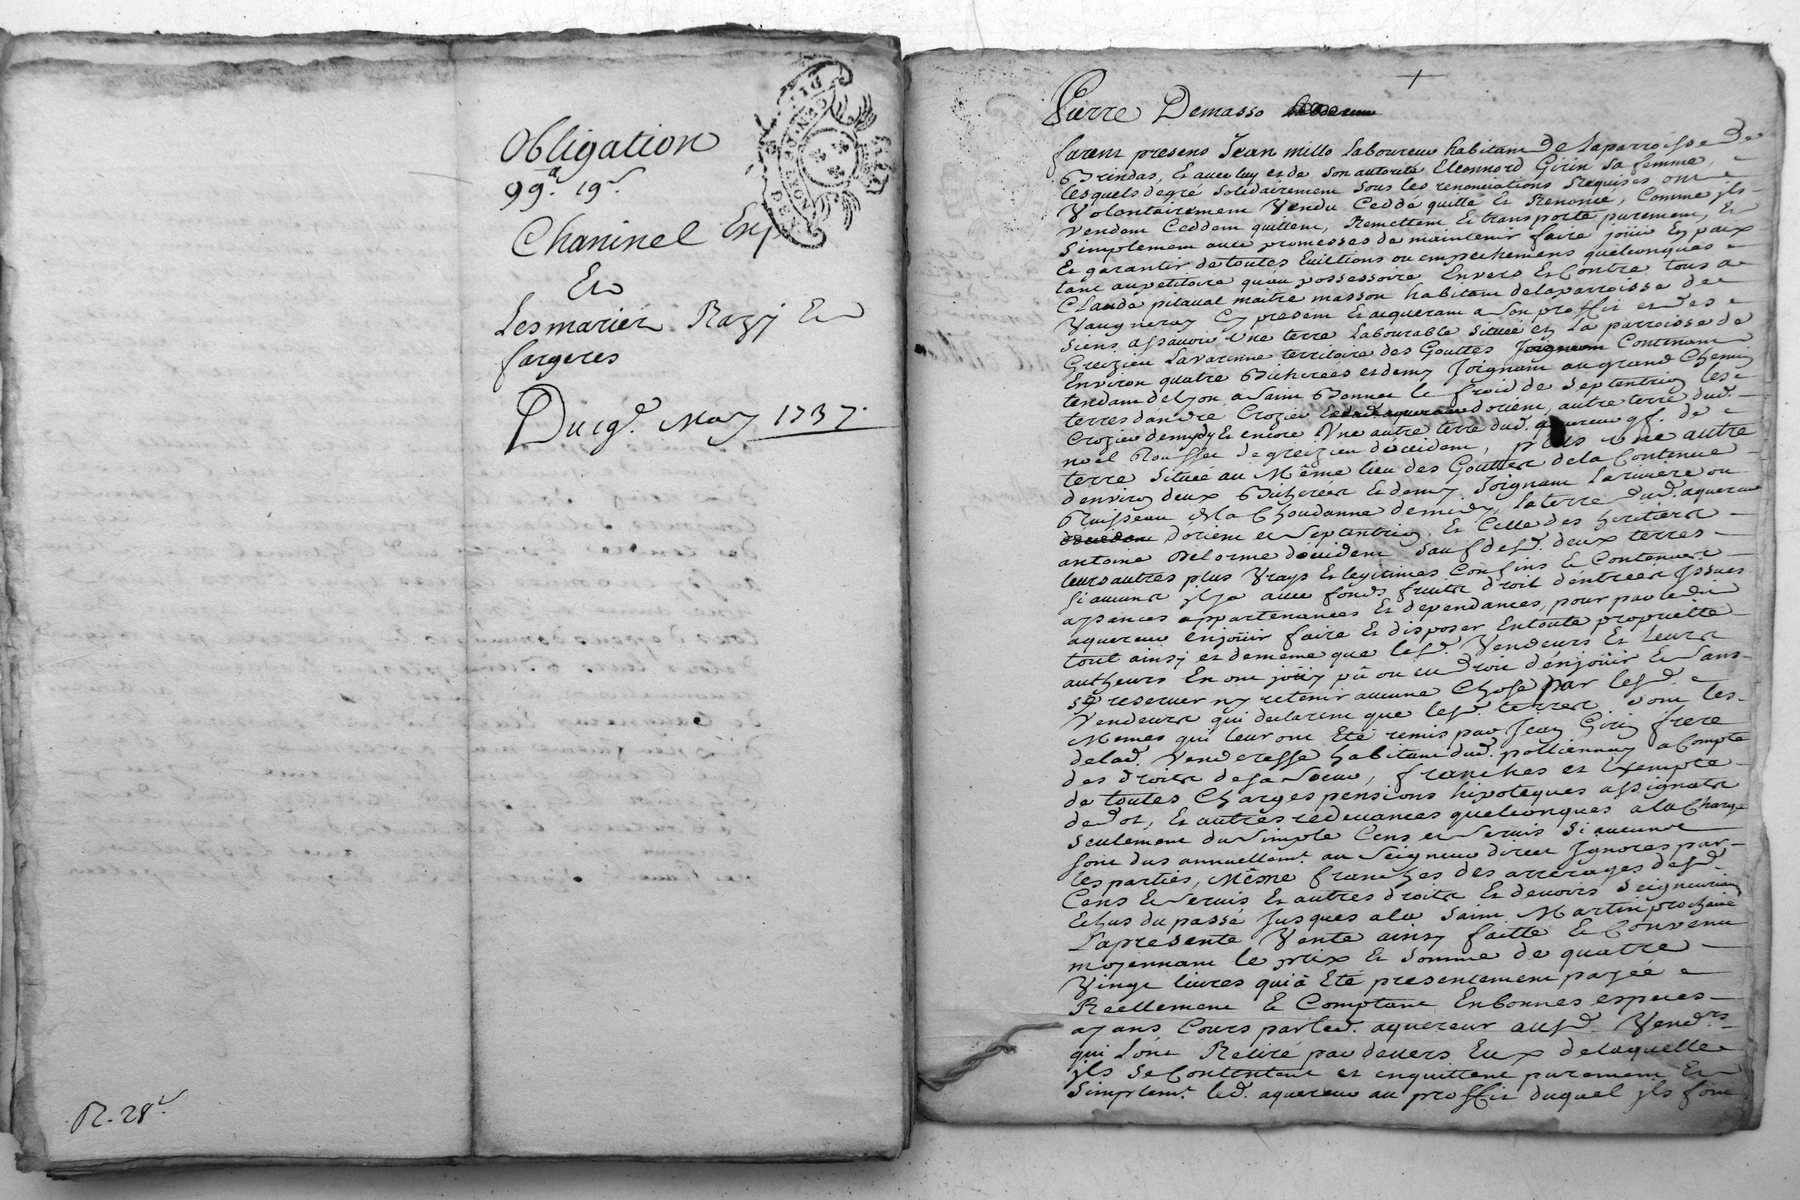 Obligation
99ᵗᵗ 19ˢ
Chaninel
Et
Les mariés Razy Et
fargeres
Du 19ᵉ. May 1737.
R. 28ˢ
GEN. DE LYON
Pierre Demasso
furent presens Jean millo Laboureur habitant De Laparroisse De
Brindas, Et avec luy et de son autorité Eleonnord Girin sa femme,
Lesquels degré solidairement sous les renonciations Requises ont
Volontairement Vendu Ceddé quitté Et Remené, Comme ils
Vendent Ceddent quittent, Remettent Et transporte purement, Et
Simplement avec promesses de maintenir faire jouir En paix
Et garantir de toutes Evictions ou empechemens quelconques
tant au petitoire qu'au possessoire Envers Et Contre tous a
Claude pitaval maitre masson habitant de laparroisse de
Vaugneray Cy present Et aquerant a son proffit et des
Siens, assavoir Une terre Labourable située en La parroisse de
Greizieu Lavarenne territoire des Gouttes Contenant
Environ quatre Bicherees et demy Joignant au grand Chemin
tendant de Lyon a Saint Bonnet le froid de septentrion les
terres d'andré Crozier d'orient, autre terre dud.
Crozier de mydy Et encore Une autre terre dud.
noel Rousset de greizieu d'occident, plus Une autre
terre Située au Même lieu des Gouttes de la Contenue
d'environ deux Bicherées Et demy Joignant La riviere ou
Ruisseau de la Choudanne de midy, La terre dud. aquereur
d'orient et septentrion, Et Celle des heritiers
antoine Delorme d'ocident Sauf desd. deux terres
leurs autres plus Vrays Et legitimes Confins Et Contenues
Si aucuns il y a avec fonds fruits droit d'entrées Issues
aysances appartenances Et dependances, pour par ledit
aquereur enjouir faire Et disposer En toute proprieté
tout ainsy et de meme que lesd. Vendeurs Et leurs
autheurs En ont jouy pû ou eu Droit d'enjouir Et Sans
se reserver ny retenir aucune Chose par lesd.
Vendeurs qui declarent que lesd. terres sont les
Memes qui leur ont Eté remis par Jean Girin frere
delad. Venderesse habitant dud. pollionnay a Compte
des droits de sa soeur, franches et Exempte
de toutes Charges pensions hipoteques assignats
de dot, Et autres redevances quelconques a la Charge
Seulement du Simple Cens et Servis Si aucuns
sont dus annuellemt. au Seigneur direct Ignorés par
les parties, Même franches des arrerages desd.
Cens Et Servis Et autres droits Et devoirs Seigneuriaux
Echus du passé Jusques a la Saint Martin prochaine
La presente Vente ainsy faitte Et Convenu
moyennant le prix Et Somme de quatre
Vingt livres qui à Eté presentement payée
Reellement Et Comptant En bonnes especes
ayans Cours par led. aquereur ausd. Vendrs.
qui l'ont Retiré par devers Eux de laquelle
ils se Contentent et en quittent purement Et
Simplemt. led. aquereur au proffit duquel ils font